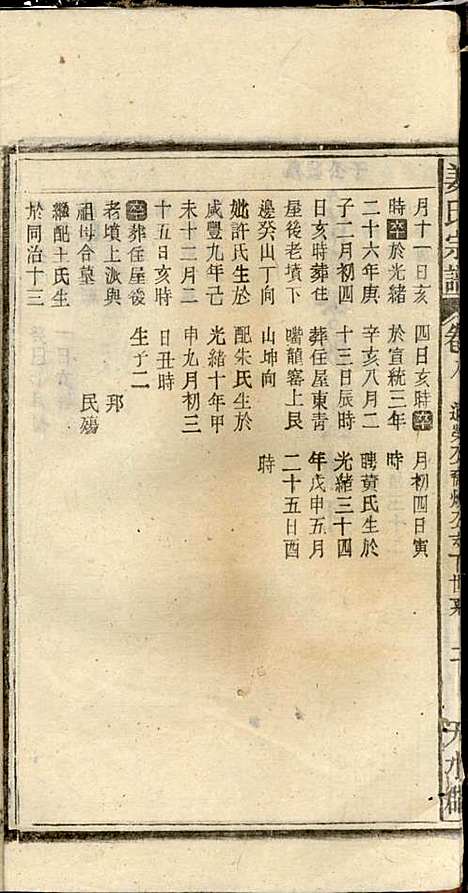 姜氏宗譜
卷八
二
天水郡
月十一日亥
時卒於光緒
二十六年庚
子二月初四
日亥時葬住
屋後老墳下
邊癸山丁向
妣許氏生於
咸豐九年己
未十二月二
十五日亥時
卒葬住屋後
老墳上派與
祖母合墓
繼配王氏生
於同治十三
四日亥時卒
於宣統三年
辛亥八月二
十三日辰時
葬住屋東青
嘴龍窰上艮
山坤向
配朱氏生於
光緒十年甲
申九月初三
日丑時
生子二
邦
民殤
月初四日寅
時
聘黃氏生於
光緒三十四
年戊申五月
二十五日酉
時